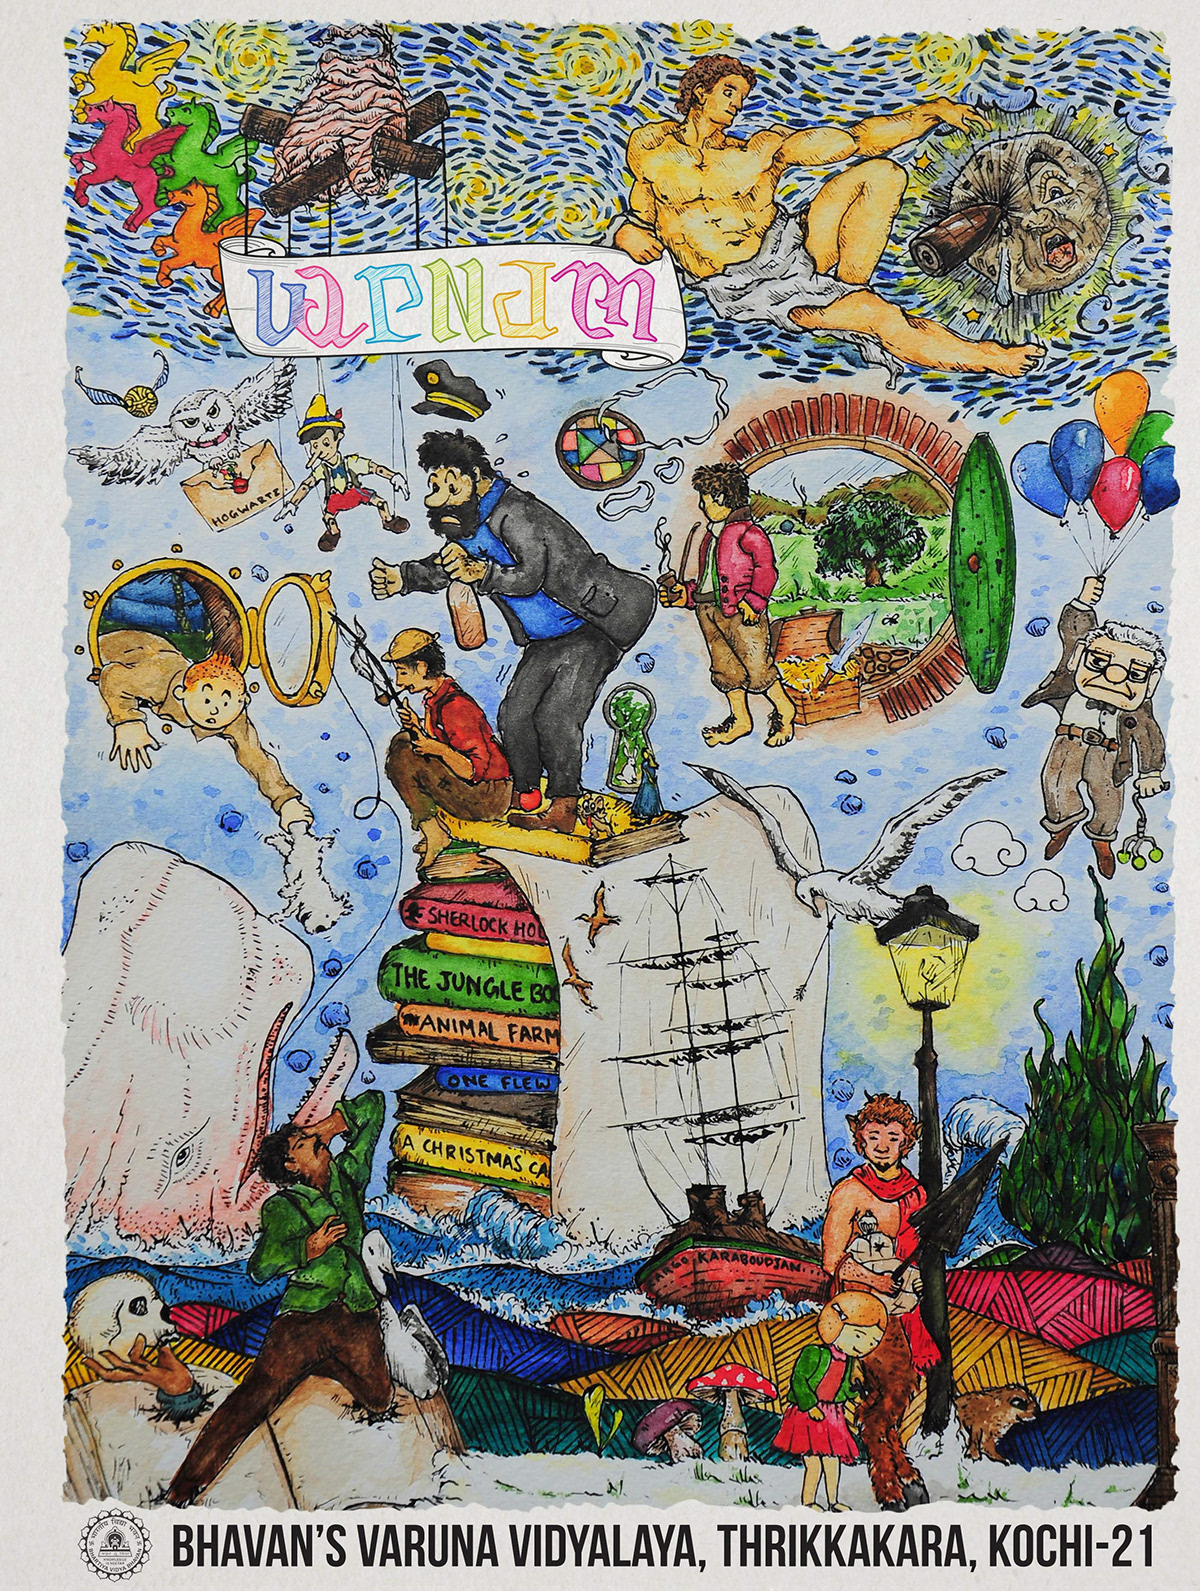 VARNAM
HOGWARTS
SHERLOCK HO
THE JUNGLE BO
ANIMAL FARM
ONE FLEW
A CHRISTMAS CA
ARGO KARABOUDJAN...
BHAVAN'S VARUNA VIDYALAYA, THRIKKAKARA, KOCHI-21